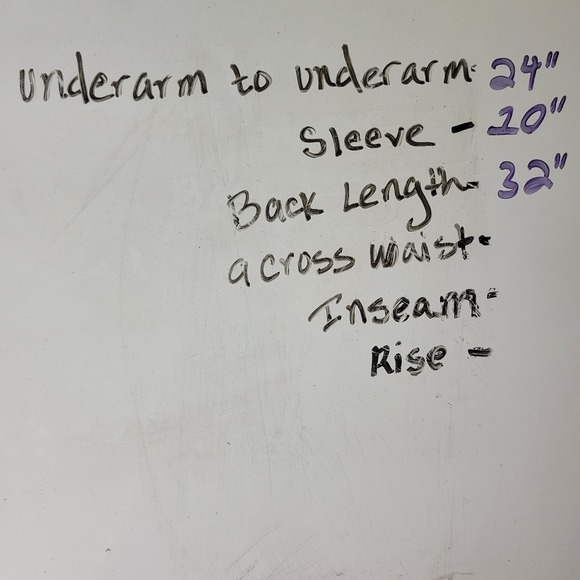 underarm to underarm- 24"
Sleeve - 10"
Back Length- 32"
across waist-
Inseam-
Rise -